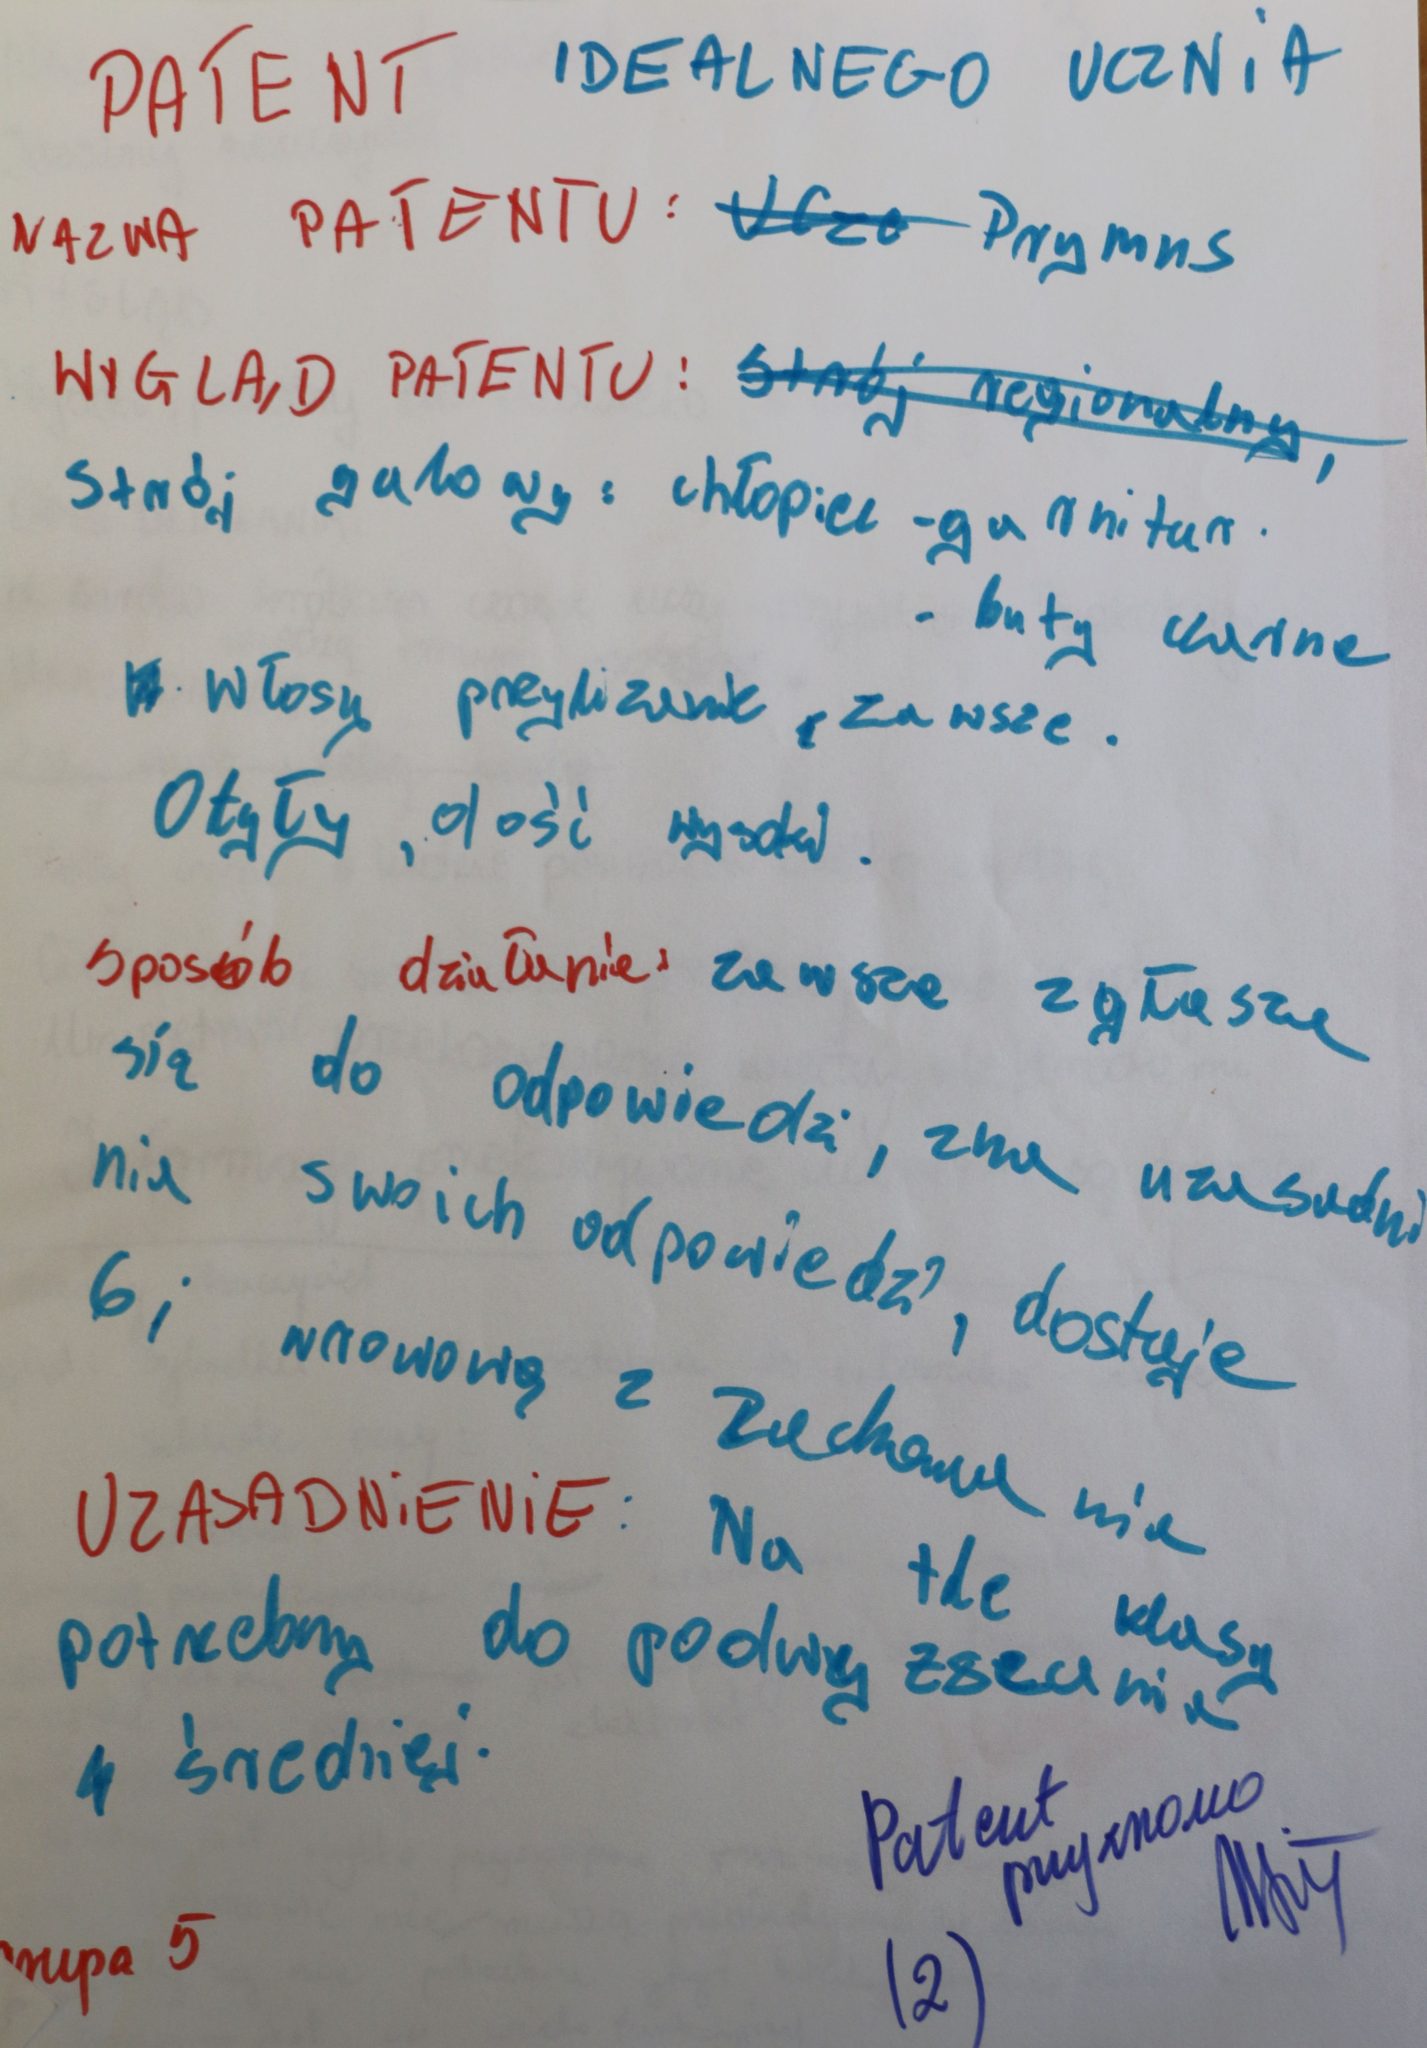 PATENT IDEALNEGO UCZNIA
NAZWA PATENTU: Ucze Prymus
WYGLĄD PATENTU: strój regionalny,
strój galowy: chłopiec - garnitur.
- buty czarne
włosy przylizane, zawsze.
Otyły, dość wysoki.
sposób działania: zawsze zgłasza
się do odpowiedzi, zna uzasadni
nia swoich odpowiedzi, dostaje
6; wzorową z zachowania
UZASADNIENIE: Na tle klasy
potrzebny do podwyzszania
średniej.
Patent
przyznano
(2)
Grupa 5